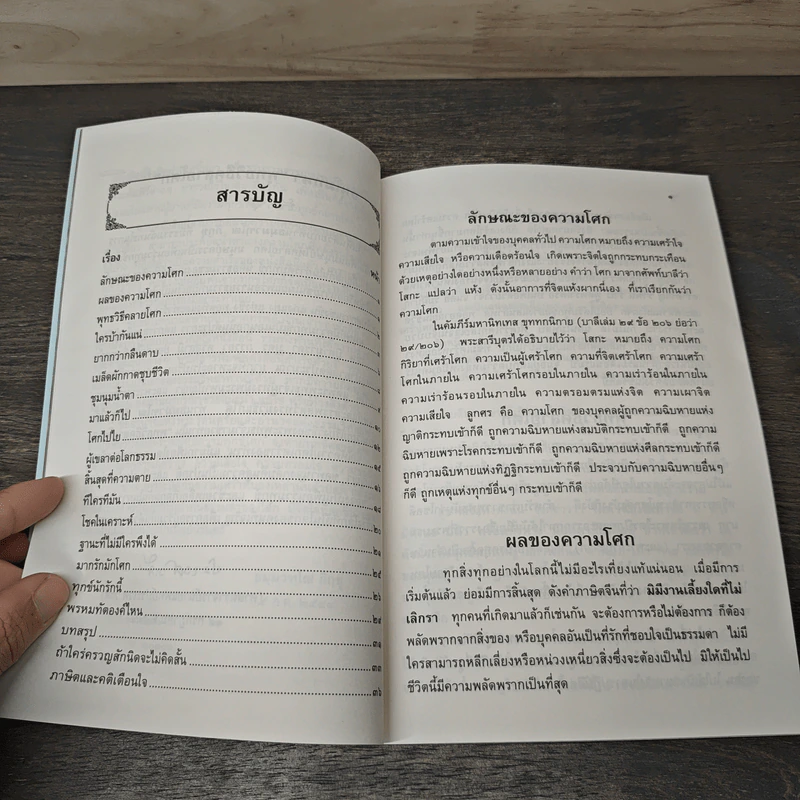 สารบัญ
เรื่อง
ลักษณะของความโศก
ผลของความโศก
พุทธวิธีคลายโศก
ใครบ้ากันแน่
ยากกว่ากลืนดาบ
เมล็ดผักกาดชุบชีวิต
ชุมนุมน้ำตา
มาแล้วก็ไป
โศกไปใย
ผู้เขลาต่อโลกธรรม
สิ้นสุดที่ความตาย
ทีใครทีมัน ๑๘
โชคในเคราะห์ ๒๐
ฐานะที่ไม่มีใครพึงได้ ๒๑
มากรักมักโศก ๒๕
ทุกข์นักรักนี้ ๒๖
พรหมทัตองค์ไหน ๒๙
บทสรุป ๓๑
ถ้าใคร่ครวญสักนิดจะไม่คิดสั้น ๓๓
ภาษิตและคติเตือนใจ ๓๖
ลักษณะของความโศก
ตามความเข้าใจของบุคคลทั่วไป ความโศก หมายถึง ความเศร้าใจ
ความเสียใจ หรือความเดือดร้อนใจ เกิดเพราะจิตใจถูกกระทบกระเทือน
ด้วยเหตุอย่างใดอย่างหนึ่งหรือหลายอย่าง คำว่า โศก มาจากศัพท์บาลีว่า
โสกะ แปลว่า แห้ง ดังนั้นอาการที่จิตแห้งผากนี่เอง ที่เราเรียกกันว่า
ความโศก
ในคัมภีร์มหานิทเทส ขุททกนิกาย (บาลีเล่ม ๒๙ ข้อ ๒๐๖ ย่อว่า
๒๙/๒๐๖) พระสารีบุตรได้อธิบายไว้ว่า โสกะ หมายถึง ความโศก
กิริยาที่เศร้าโศก ความเป็นผู้เศร้าโศก ความที่จิตเศร้าโศก ความเศร้า
โศกในภายใน ความเศร้าโศกรอบในภายใน ความเร่าร้อนในภายใน
ความเร่าร้อนรอบในภายใน ความตรอมตรมแห่งจิต ความเผาจิต
ความเสียใจ ลูกศร คือ ความโศก ของบุคคลผู้ถูกความฉิบหายแห่ง
ญาติกระทบเข้าก็ดี ถูกความฉิบหายแห่งสมบัติกระทบเข้าก็ดี ถูกความ
ฉิบหายเพราะโรคกระทบเข้าก็ดี ถูกความฉิบหายแห่งศีลกระทบเข้าก็ดี
ถูกความฉิบหายแห่งทิฏฐิกระทบเข้าก็ดี ประจวบกับความฉิบหายอื่นๆ
ก็ดี ถูกเหตุแห่งทุกข์อื่นๆ กระทบเข้าก็ดี
ผลของความโศก
ทุกสิ่งทุกอย่างในโลกนี้ไม่มีอะไรเที่ยงแท้แน่นอน เมื่อมีการ
เริ่มต้นแล้ว ย่อมมีการสิ้นสุด ดังคำภาษิตจีนที่ว่า มิมีงานเลี้ยงใดที่ไม่
เลิกรา ทุกคนที่เกิดมาแล้วก็เช่นกัน จะต้องการหรือไม่ต้องการ ก็ต้อง
พลัดพรากจากสิ่งของ หรือบุคคลอันเป็นที่รักที่ชอบใจเป็นธรรมดา ไม่มี
ใครสามารถหลีกเลี่ยงหรือหน่วงเหนี่ยวสิ่งซึ่งจะต้องเป็นไป มิให้เป็นไป
ชีวิตนี้มีความพลัดพรากเป็นที่สุด